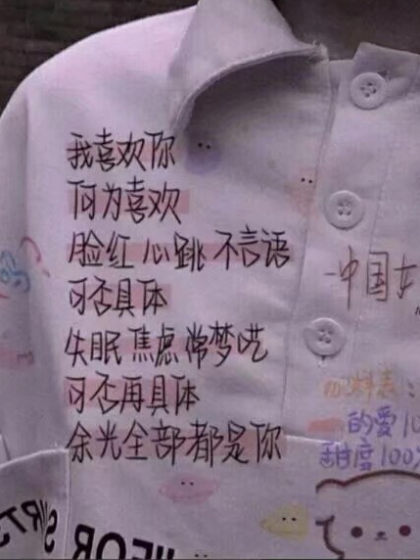 我喜欢你
何为喜欢
脸红心跳不言语
可否具体
失眠焦虑常梦呓
可否再具体
余光全部都是你
中国
料表:
的爱10
甜度100%